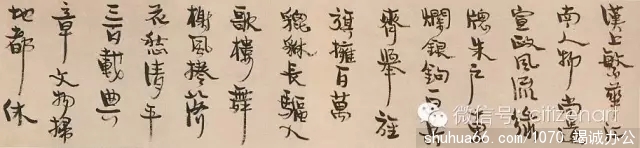 漢上繁華江
南人物尚遺
宣政風流綠
窗朱户十里
爛銀鉤一
齊舉旌
旗擁百萬
貔貅長驅入
歌樓舞
榭風捲落
花愁清平
三百載典
章文物掃
地都休
微信号: citizenart
shuhua66.com/1070 竭诚办公